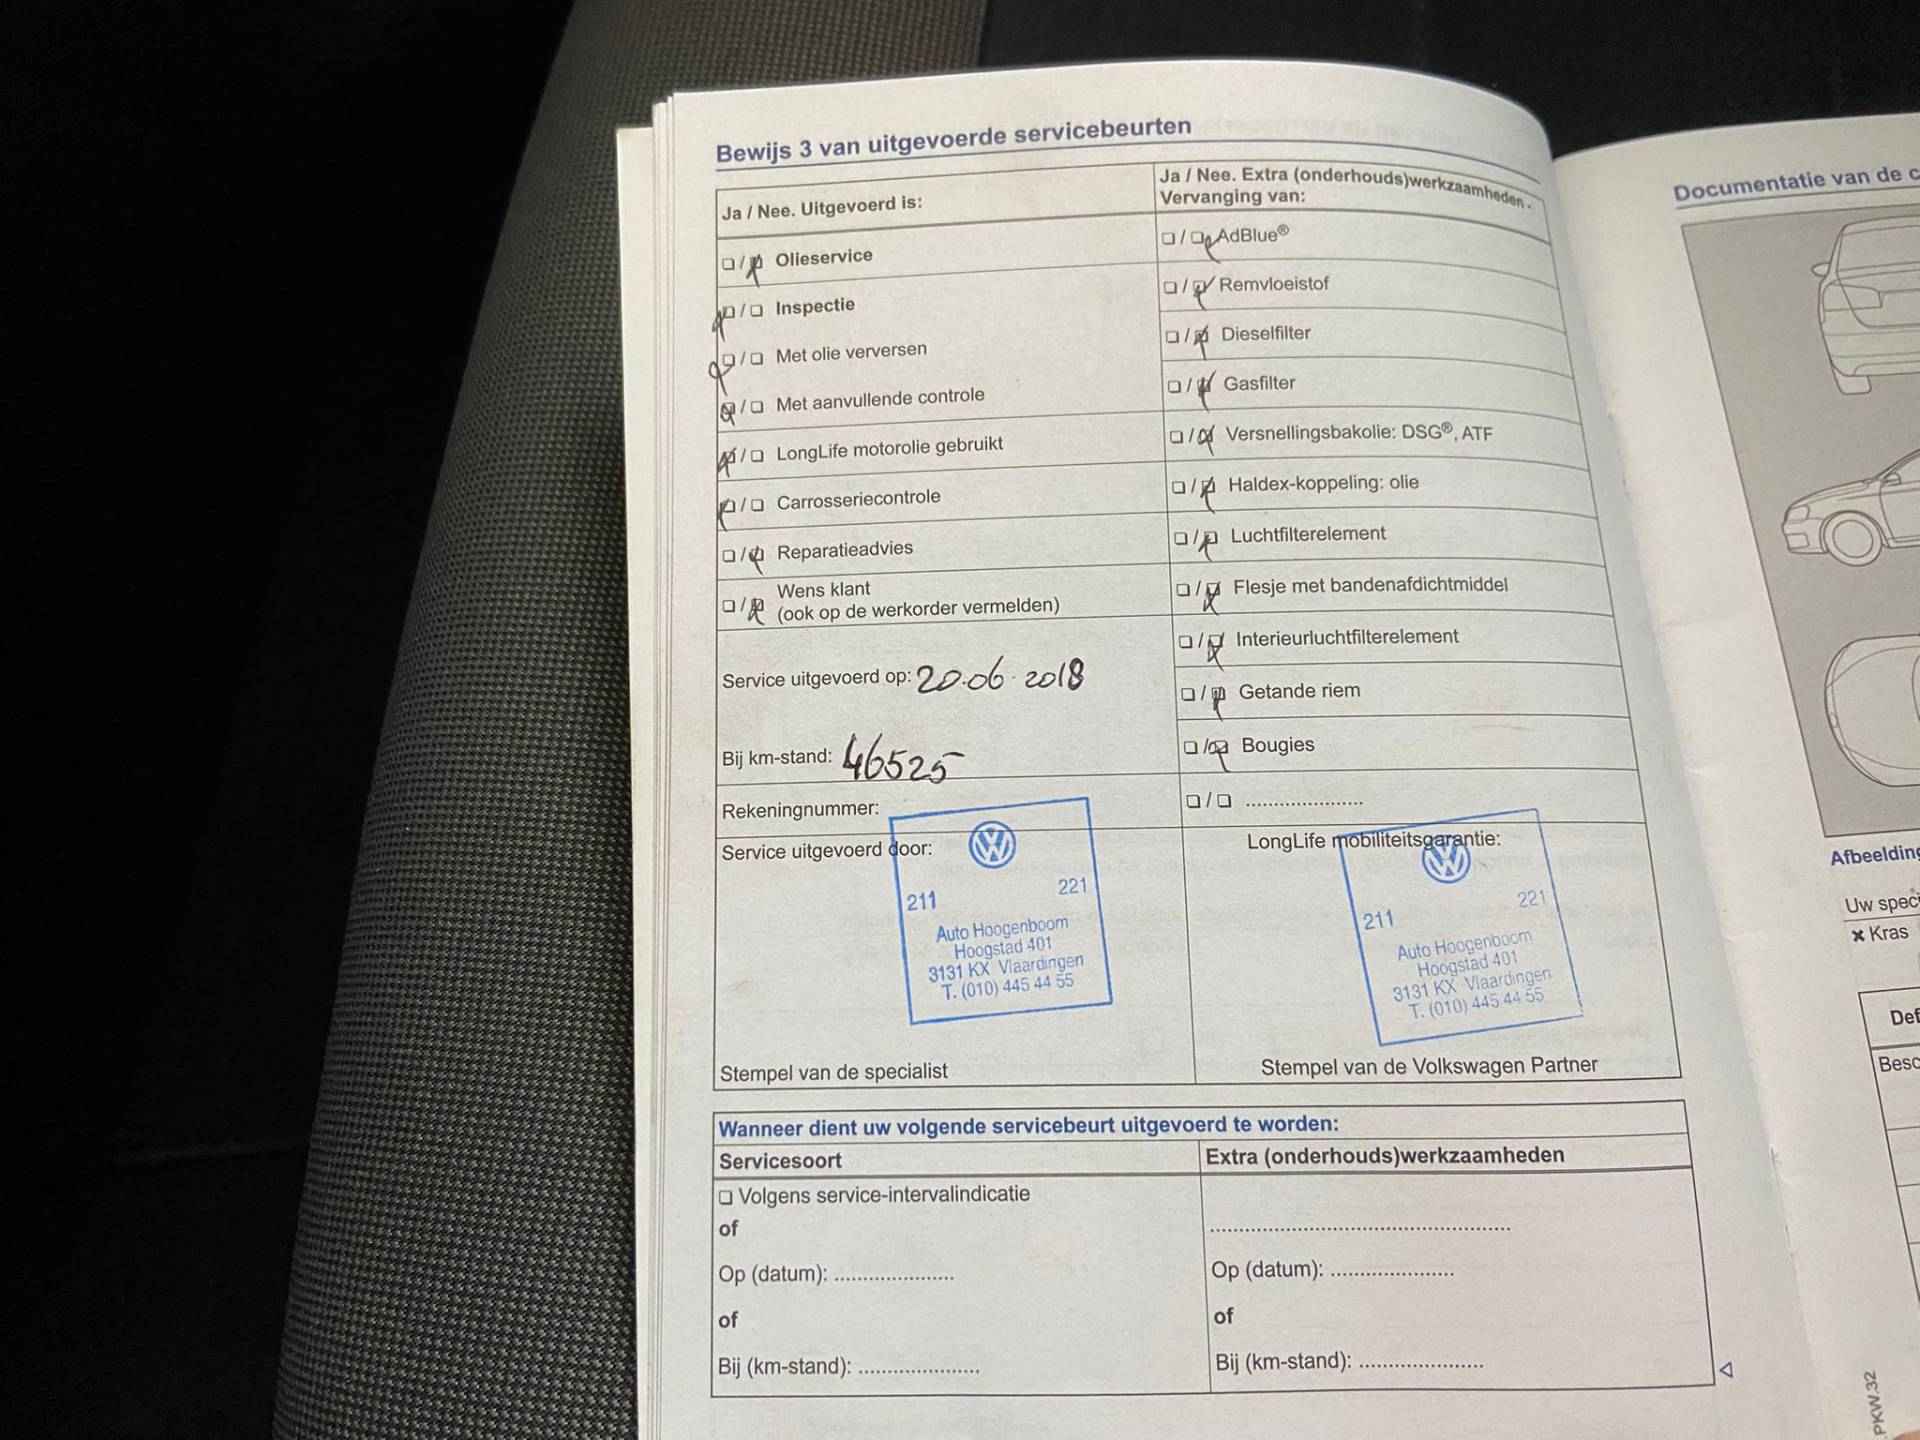 Bewijs 3 van uitgevoerde servicebeurten
Ja / Nee. Uitgevoerd is:
❏ / ❏ Olieservice
❏ / ❏ Inspectie
❏ / ❏ Met olie verversen
❏ / ❏ Met aanvullende controle
❏ / ❏ LongLife motorolie gebruikt
❏ / ❏ Carrosseriecontrole
❏ / ❏ Reparatieadvies
❏ / ❏ Wens klant
(ook op de werkorder vermelden)
Service uitgevoerd op: 20.06.2018
Bij km-stand: 46525
Rekeningnummer:
Ja / Nee. Extra (onderhouds)werkzaamheden -
Vervanging van:
❏ / ❏ AdBlue®
❏ / ❏ Remvloeistof
❏ / ❏ Dieselfilter
❏ / ❏ Gasfilter
❏ / ❏ Versnellingsbakolie: DSG®, ATF
❏ / ❏ Haldex-koppeling: olie
❏ / ❏ Luchtfilterelement
❏ / ❏ Flesje met bandenafdichtmiddel
❏ / ❏ Interieurluchtfilterelement
❏ / ❏ Getande riem
❏ / ❏ Bougies
❏ / ❏ .....................
Service uitgevoerd door:
211 221
Auto Hoogenboom
Hoogstad 401
3131 KX Vlaardingen
T. (010) 445 44 55
Stempel van de specialist
LongLife mobiliteitsgarantie:
211 221
Auto Hoogenboom
Hoogstad 401
3131 KX Vlaardingen
T. (010) 445 44 55
Stempel van de Volkswagen Partner
Wanneer dient uw volgende servicebeurt uitgevoerd te worden:
Servicesoort
❏ Volgens service-intervalindicatie
of
Op (datum): .....................
of
Bij (km-stand): .....................
Extra (onderhouds)werkzaamheden
.....................................................
Op (datum): .....................
of
Bij (km-stand): .....................
Documentatie van de c
Afbeelding
Uw speci
✖ Kras
Def
Besc
.PKW.32